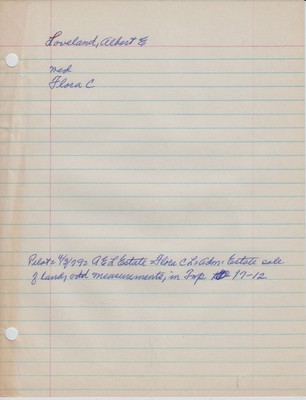 Loveland, Albert E
med
Flora C
Pilot = 4/3/79 = A E L Estate = Flora C L, Adm. Estate sale
of land, odd measurements, in Twp 17-12